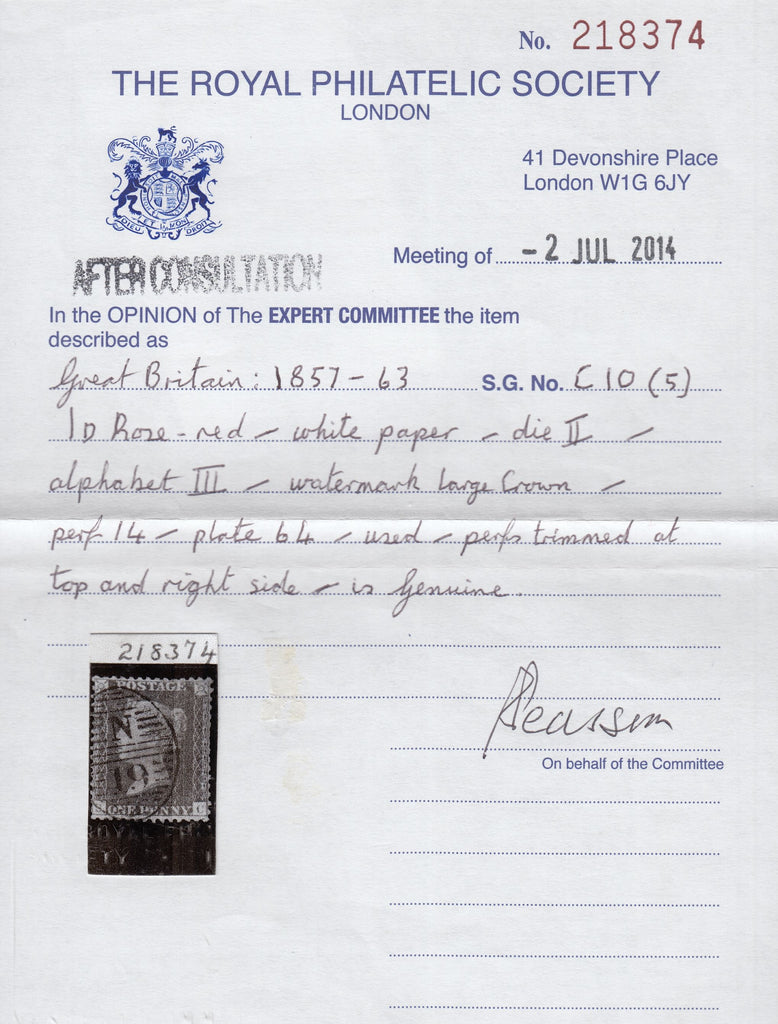 No. 218374
THE ROYAL PHILATELIC SOCIETY
LONDON
41 Devonshire Place
London W1G 6JY
DIEU ET MON DROIT
Meeting of - 2 JUL 2014
AFTER CONSULTATION
In the OPINION of The EXPERT COMMITTEE the item
described as
Great Britain: 1857-63 S.G. No. C10 (5)
1D Rose-red - white paper - die II -
alphabet III - watermark Large Crown -
perf 14 - plate 64 - used - perfs trimmed at
top and right side - is Genuine.
218374
POSTAGE
N
19
ONE PENNY
On behalf of the Committee